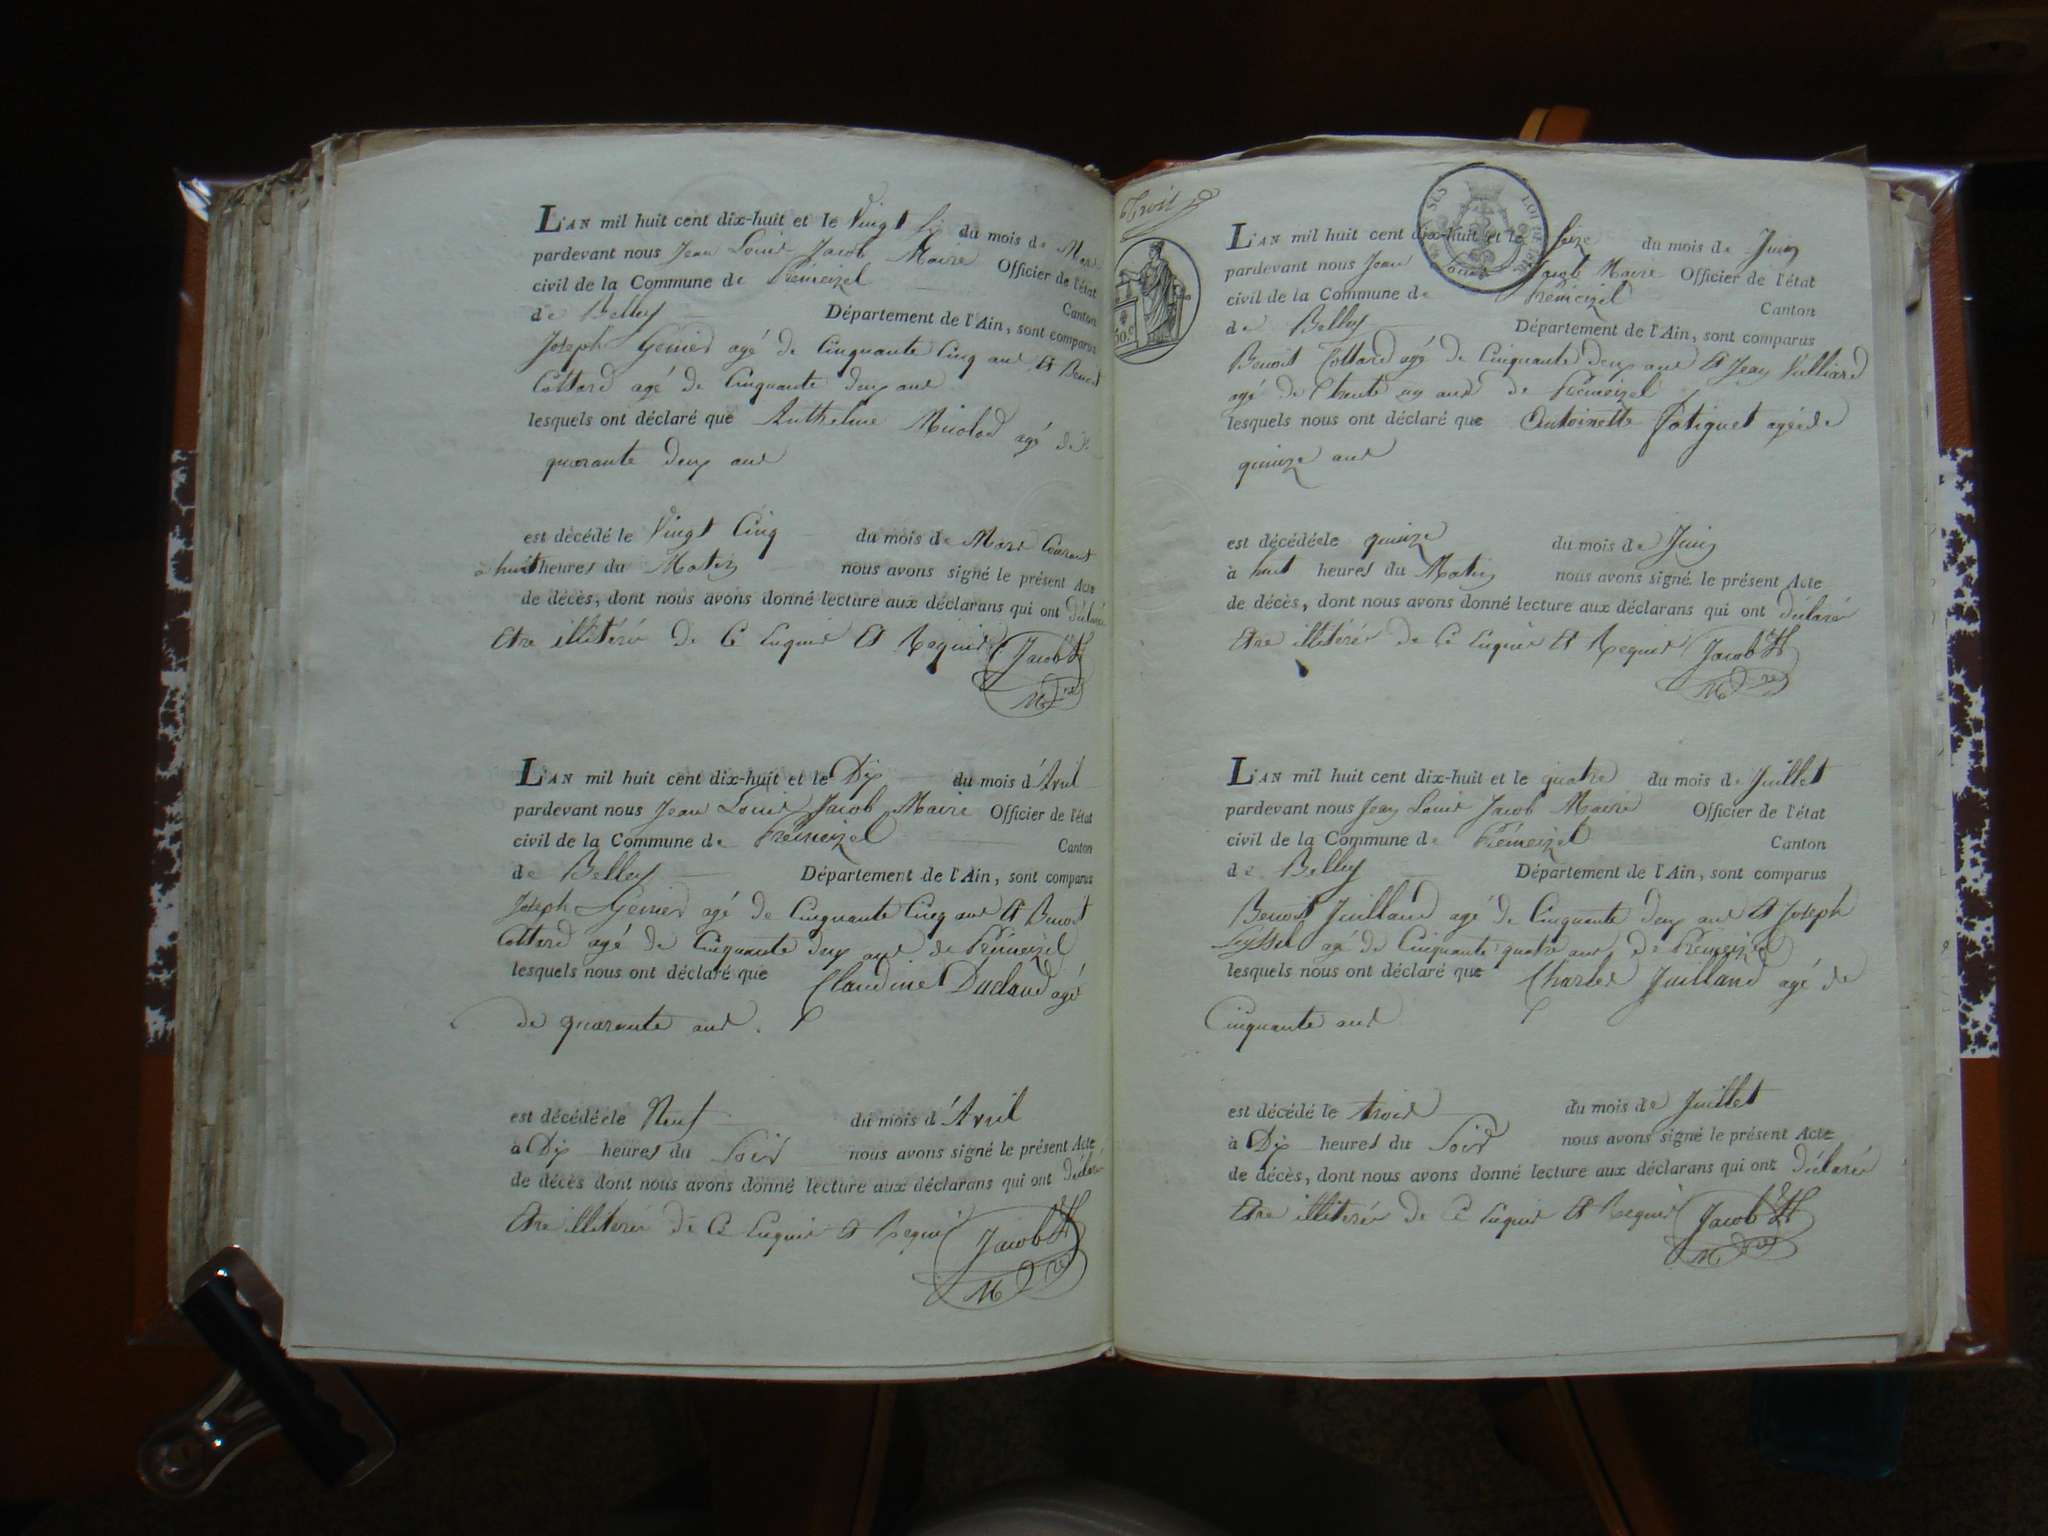 L'AN mil huit cent dix-huit et le Vingt Six du mois de Mars
pardevant nous Jean Louis Jacob Maire Officier de l'état
civil de la Commune de Prémeizel Canton
de Belley Département de l'Ain, sont comparus
Joseph agé de Cinquante Cinq ans Et Benoit
Cottard agé de Cinquante deux ans
lesquels ont déclaré que Anthelme agé de
quarante deux ans
est décédé le Vingt Cinq du mois de Mars Courant
à huit heures du Matin nous avons signé le présent Acte
de décès, dont nous avons donné lecture aux déclarans qui ont déclaré
Etre illitérés de Ce Enquis Et Requis Jacob
M.re
L'AN mil huit cent dix-huit et le Dix du mois d'Avril
pardevant nous Jean Louis Jacob Maire Officier de l'état
civil de la Commune de Prémeizel Canton
de Belley Département de l'Ain, sont comparus
Joseph agé de Cinquante Cinq ans Et Benoit
Cottard agé de Cinquante deux ans de Prémeizel
lesquels nous ont déclaré que Claudine Duclaud agé
de quarante ans.
est décédée le Neuf du mois d'Avril
à Dix heures du Soir nous avons signé le présent Acte
de décès dont nous avons donné lecture aux déclarans qui ont déclaré
Etre illiterés de Ce Enquis Et Requis Jacob
M.re
Trois
50.c
L'AN mil huit cent dix-huit et le Seize du mois de Juin
pardevant nous Jean Louis Jacob Maire Officier de l'état
civil de la Commune de Prémeizel Canton
de Belley Département de l'Ain, sont comparus
Benoit Cottard agé de Cinquante deux ans Et Jean Vulliard
agé de trente un ans de Prémeizel
lesquels nous ont déclaré que Antoinette Fatiguet agée de
quinze ans
est décédée le quinze du mois de Juin
à huit heures du Matin nous avons signé le présent Acte
de décès, dont nous avons donné lecture aux déclarans qui ont déclaré
Etre illitérés de Ce Enquis Et Requis Jacob
M.re
L'AN mil huit cent dix-huit et le quatre du mois de Juillet
pardevant nous Jean Louis Jacob Maire Officier de l'état
civil de la Commune de Prémeizel Canton
de Belley Département de l'Ain, sont comparus
Benoit Juilland agé de Cinquante deux ans Et Joseph
Seyssel agé de Cinquante quatre ans de Prémeizel
lesquels nous ont déclaré que Charles Juilland agé de
Cinquante ans
est décédé le trois du mois de Juillet
à Dix heures du Soir nous avons signé le présent Acte
de décès, dont nous avons donné lecture aux déclarans qui ont déclaré
Etre illiterés de Ce Enquis Et Requis Jacob
M.re